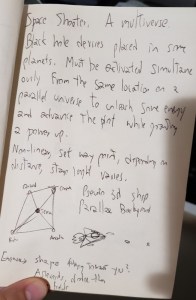 Space Shooter. A multiverse.
Black hole devices placed in some
planets. Must be activated simultane
ously from the same location on a
parallel universe to unleash some energy
and advance the plot while granting
a power up.
Non-linear, set way point, depending on
distance, stage length varies.
3d ship
Parallax Background
Enemies shape